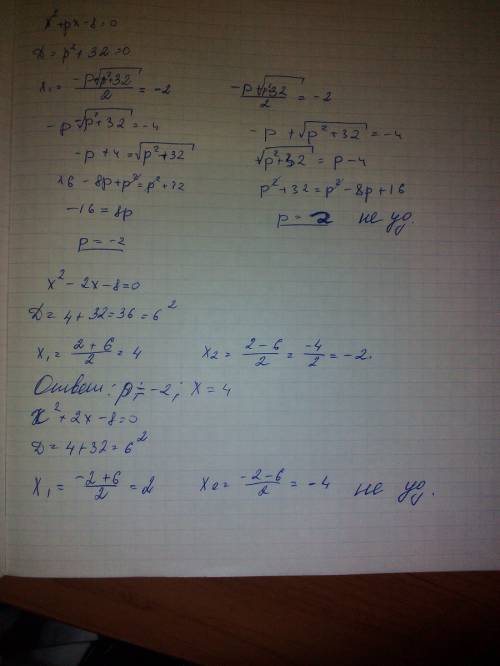 x²+px-8=0
D=p²+32=0
x₁= (-p-√(p²+32))/2 = -2
-p-√(p²+32)=-4
-p+4=√(p²+32)
16-8p+p²=p²+32
-16=8p
p=-2
(-p+√(p²+32))/2 = -2
-p+√(p²+32)=-4
√(p²+32)=p-4
p²+32=p²-8p+16
p=-2 не уд.
x²-2x-8=0
D=4+32=36=6²
x₁= (2+6)/2 = 4 x₂= (2-6)/2 = -4/2 = -2.
Ответ: p=-2; x=4
x²+2x-8=0
D=4+32=6²
x₁= (-2+6)/2 = 2 x₂= (-2-6)/2 = -4 не уд.